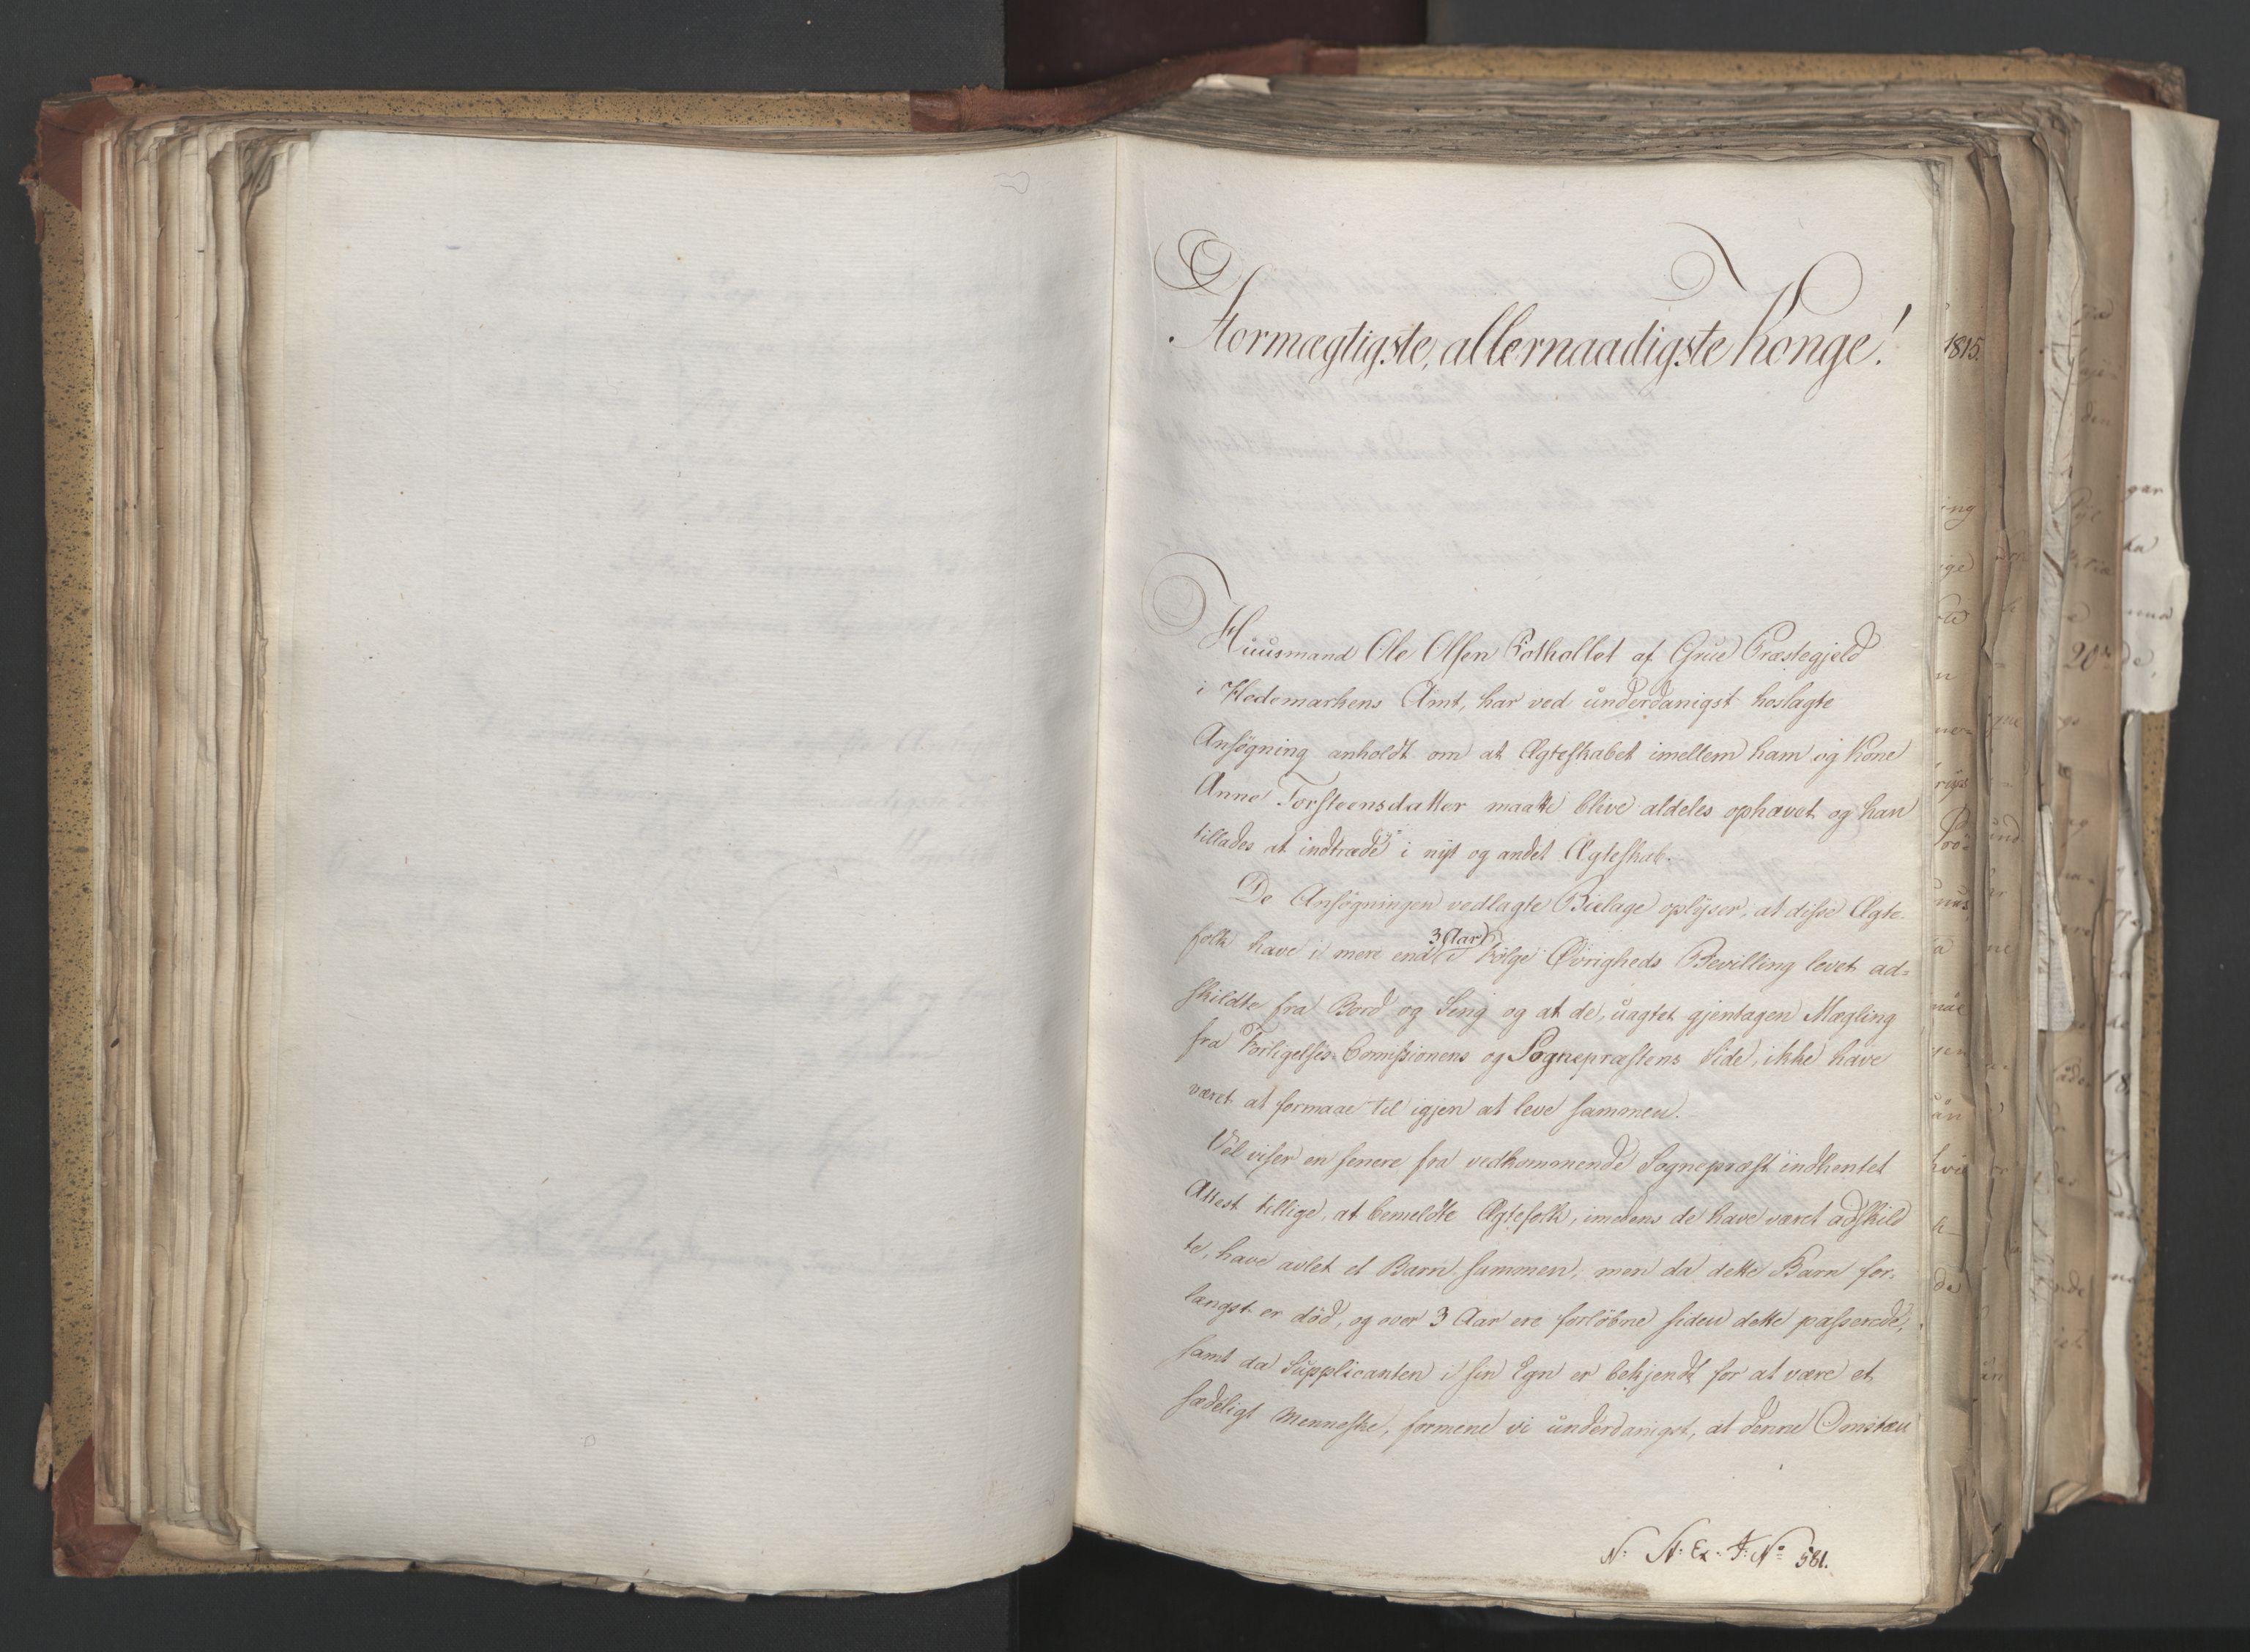 Stormægtigste, allernaadigste Konge!
Huusmand Ole Olsen Rothollet af Grue Præstegjeld
i Hedemarkens Amt, har ved underdanigst hoslagte
Ansøgning anholdt om at Ægteskabet imellem ham og Kone
Anne Torsteensdatter maatte blive aldeles ophævet og han
tillades at indtræde i nyt og andet Ægteskab.
De Ansøgningen vedlagte Bielage oplyser, at disse Ægte-
folk have i mere end 3 Aar i Følge Øvrigheds Bevilling levet ad-
skildte fra Bord og Seng og at de, uagtet gjentagen Mægling
fra Forligelses-Comissionens og Sognepræstens Side, ikke have
været at formaae til igjen at leve sammen.
Vel viser en senere fra vedkommende Sognepræst indhentet
Attest tillige, at bemeldte Ægtefolk, imedens de have været adskild
te, have avlet et Barn sammen, men da dette Barn for-
længst er død, og over 3 Aar ere forløbne siden dette passerede,
samt da Supplicanten i sin Egn er bekjendt for at være et
sædeligt Menneske, formene vi underdanigst, at denne Omstæn
N: N: Ex: F: No 581.
1815.